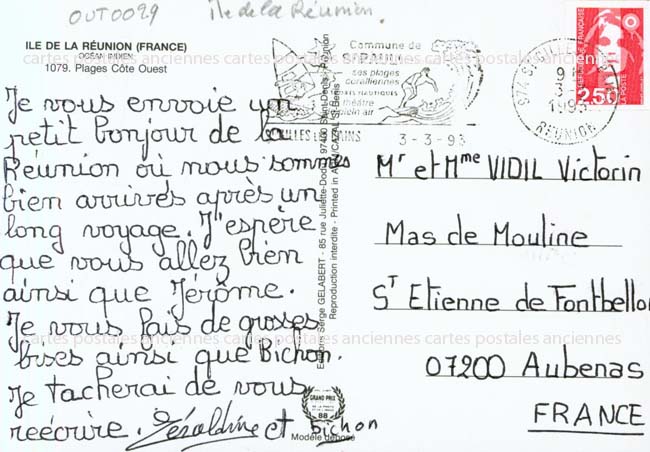 OUT0029 île de la Réunion.
ILE DE LA RÉUNION (FRANCE)
OCEAN INDIEN
1079. Plages Côte Ouest
cartes postales anciennes cartes postales anciennes cartes postales anciennes
Je vous envoie un
petit bonjour de la
Réunion où nous sommes
bien arrivés après un
long voyage. J'espère
que vous allez bien
ainsi que Jérôme.
Je vous fais de grosses
bises ainsi que Bichon.
Je tacherai de vous
réécrire. Géraldine et Bichon
Commune de
ST PAUL
ses plages
coralliennes
théâtre
plein air
3-3-93
RÉUNION
RÉPUBLIQUE FRANÇAISE
2,50
LA POSTE
Editions Serge GELABERT - 85 rue Juliette-Dodu 97400 Saint-Denis - Réunion
Reproduction interdite - Printed in
GRAND PRIX
88
Modèle déposé
Mr et Mme VIDIL Victorin
Mas de Mouline
ST Etienne de Fontbellon
07200 Aubenas
FRANCE
cartes postales anciennes cartes postales anciennes cartes postales anciennes